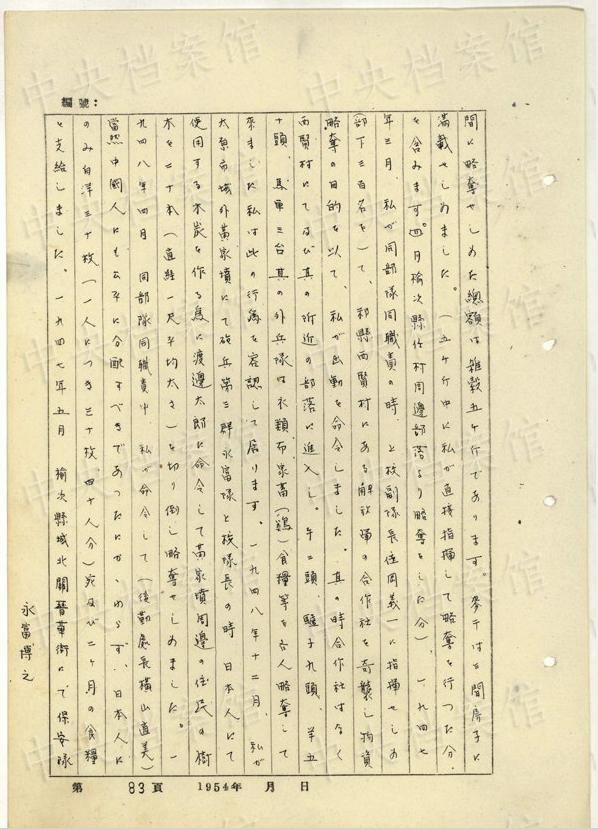 編號：
間に略奪せしめた總額は雑穀五ヶ行であります。麥千は三間房子に
滿載せしめました。（五ヶ行中に私が直接指揮して略奪を行つた分
を含みます 四月楡次縣任村周邊部落より略奪をした分）、一九四七
年三月、私が同部隊同職責の時、上校副隊長住岡義一に指揮せしめ
（部下三百名をして、祁縣西賢村にある解放軍の合作社を奇襲し物資
略奪の目的を以て、私が出動を命令しました。其の時合作社はなく
西賢村にて及び其の附近の部落に進入し。牛二頭、騾子九頭、羊五
十頭、馬車三台其の外兵隊は衣類布家畜（鶏）食糧等を各人略奪して
來ました私は此の行為を容認して居ります。一九四八年十二月、私が
太原市域外黃家墳にて砲兵第三群永富隊上校隊長の時 日本人にて
使用する木炭を作る為に渡邊太郎に命令して黃家墳周邊の住民の樹
木を二十本（直経一尺平均太さ）を切り倒し略奪せしめました。一
九四八年四月 同部隊同職責中、私が命令して（後勤處長橫山直美）
當然中國人にも公平に分配すべきであつたにかゝわらず、日本人に
のみ白洋三十枚（一人につき三十枚、四十人分）宛及び二ヶ月の食糧
を支給しました。一九四七年五月 楡次縣城北關晉華街にて保安隊
永富博之
第 83頁 1954年 月 日
中央档案馆